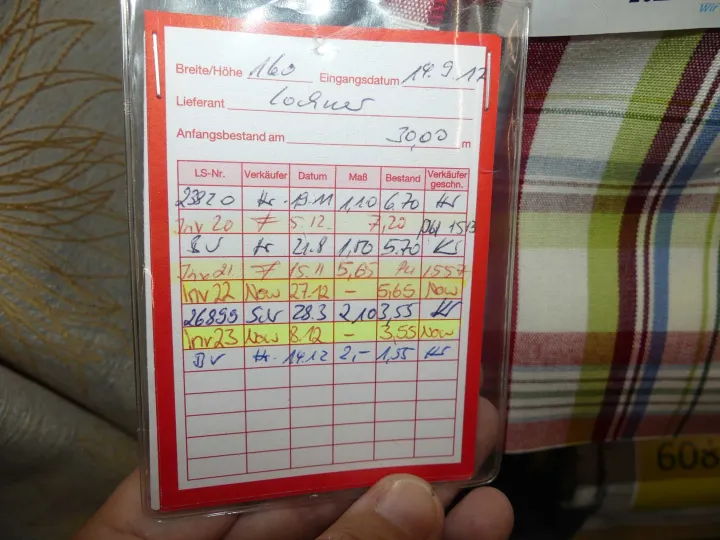 Wir
Breite/Höhe 160 Eingangsdatum 14.9.17
Lieferant
Anfangsbestand am 30,00 m
LS-Nr. Verkäufer Datum Maß Bestand Verkäufer geschn.
23820 Kr. 19.11 1,10 6,70 Kr
Inv 20 5.12. 7,20
BV Kr 21.8 1,00 5.70
Inv 21 15.11 5,65 1557
Inv 22 Now 27.12 – 5,65 Now
26899 28.3 2,10 3,55 Kr
Inv 23 Now 8.12 – 3,55 Now
BV Kr. 14.12 2,- 1,55 Kr
608